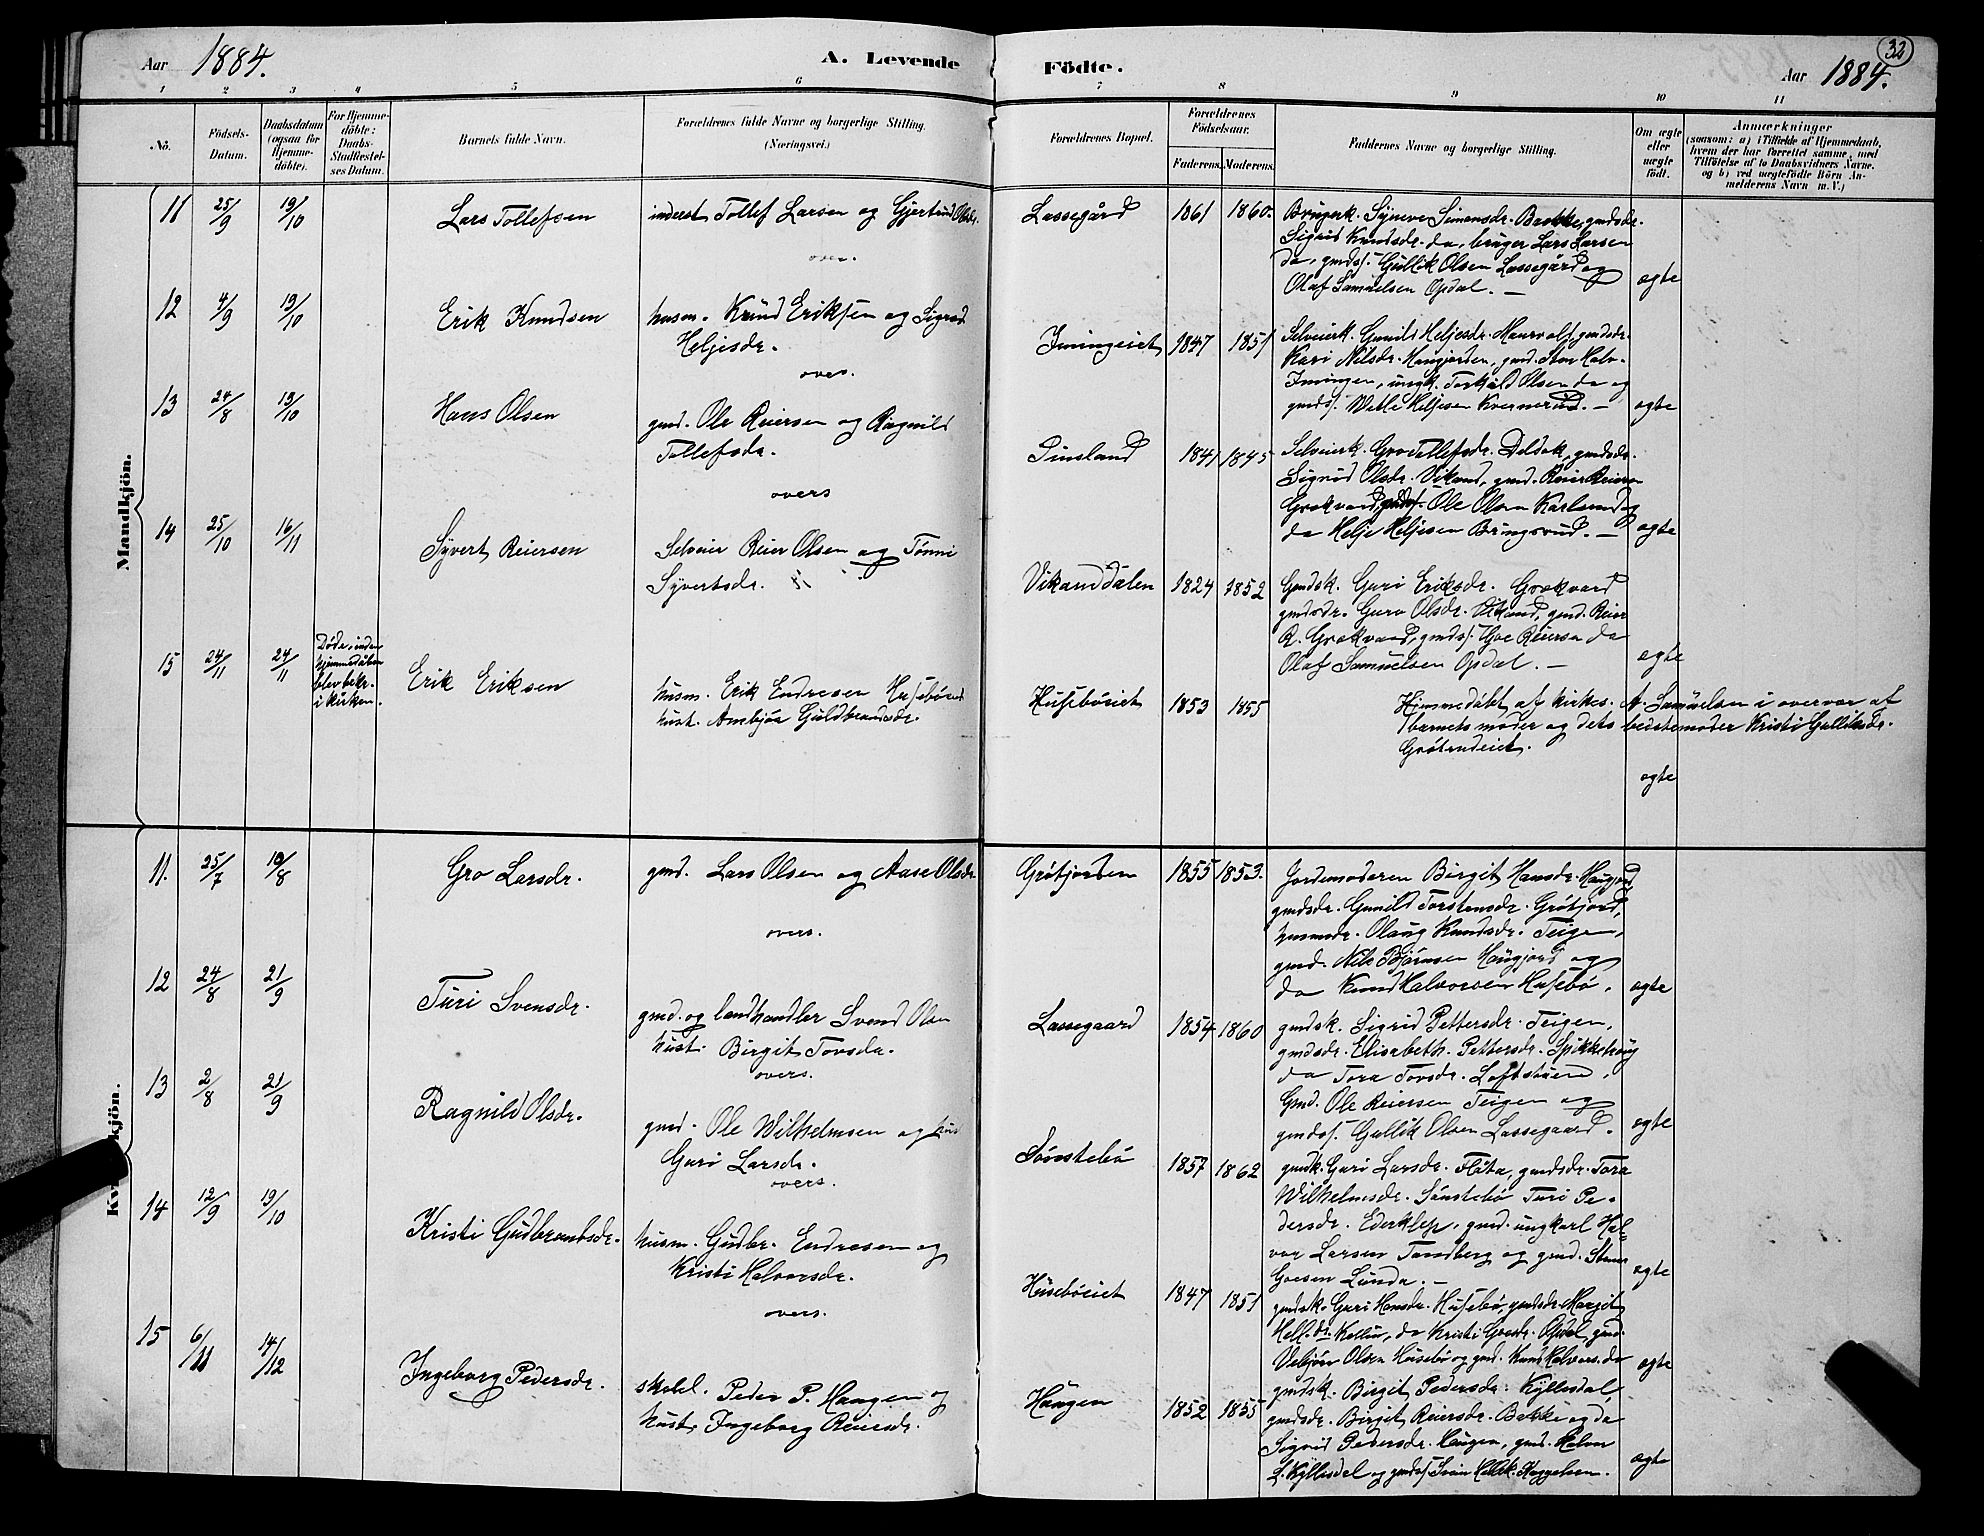 Aar 1884. A. Levende Födte. Aar 1884. 32
1 2 3 4 5 6 7 8 9 10 11
No. Födsels-Datum. Daabsdatum (ogsaa for Hjemmedöbte). For Hjemmedöbte: Daabs-Stadfæstelses Datum. Barnets fulde Navn. Forældrenes fulde Navne og borgerlige Stilling. (Næringsvei.) Forældrenes Bopæl. Forældrenes Födselsaar. Faderens. Moderens. Faddernes Navne og borgerlige Stilling. Om ægte eller uægte födt. Anmærkninger (saasom: a) i Tilfælde af Hjemmedaab, hvem der har forrettet samme, med Tilföielse af to Daabsvidners Navne. og b) ved uægtefödte Börn Anmelderens Navn m. V.)
Mandkjön.
11 25/9 19/10 Lars Tollefsen inderst Tollef Larsen og Gjertrud Olsdr. Lassegård 1861 1860. Brugerk. Syneve Simensdr. Bakke, gmdsdr.
Sigrid Knudsdr. do, bruger Lars Larsen
overs. do, gmdss. Gullik Olsen Lassegård og
Olaf Samuelsen Opdal. — ægte
12 4/9 19/10 Erik Knudsen husm. Knud Eriksen og Sigrid
Heljesdr. Imingeiet 1847 1851 Selveierk. Gunild Heljesdr.
Kari Nilsdr. Haugjorden, gmd.
overs. Imingen, ungk. Torkild Olsen do og
gmdss. Vetle Heljesen Kvernerud. — ægte
13 24/8 19/10 Hans Olsen gmd. Ole Reiersen og Ragnild
Tollefsdr. 1841 1845 Selveierk. Gro Tollefsdr. gmdsdr.
Sigrid Olsdr. Vikand, gmd. Reier Reiersen
overs Grøkvard, Ole Olsen
do Helje Heljesen Bringsrud. — ægte
14 25/10 16/11 Syvert Reiersen Selveier Reier Olsen og Tønni
Syvertsdr. Vikanddalen 1824 1852 Gmdsk. Guri Eriksdr. Grøkvard
gmdsdr. Guro Olsdr. Vikand, gmd. Reier
R. Grøkvard, gmdss. Reiersen do
Olaf Samuelsen Opdal. — ægte
15 24/11 24/11 Døde, inden
hjemmedåben
blev bekr.
i kirken. Erik Eriksen husm. Erik Endresen Husebøeiet
hust. Ambjør Guldbrandsdr. Husebøeiet 1853 1855 Hjemmedøbt af kirkes. A. Samuelsen i overvær af
barnets moder og dets bedstemoder Kristi Gulliksdr.
Grøtrudeiet.
ægte
Kvindekjön.
11. 25/7 10/8 Gro Larsdr. gmd. Lars Olsen og Aase Olsdr. Grøtjorden 1855 1853. Jordemoderen Birgit Hansdr. Haugjord,
gmdsdr. Gunild Torstensdr. Grøtjord,
overs. husmdr. Olaug Knudsdr. Teigen,
gmd. Nils Bjørnsen Haugjord og
do Knud Halvorsen Husebø. ægte
12 24/8 21/9 Turi Svensdr. gmd. og landhandler Svend Olsen
hust. Birgit Tovsdr. Lassegaard 1854 1860 gmdsk. Sigrid Pettersdr. Teigen,
gmdsdr. Elisabeth Pettersdr.
overs. do Tora Tovsdr. Loftstuen,
Gmd. Ole Reiersen Teigen og
gmdss. Gullik Olsen Lassegaard. ægte
13 2/8 21/9 Ragnild Olsdr. gmd. Ole Wilhelmsen og hus
Guri Larsdr. Sønstebø 1857 1862 gmdsk. Guri Larsdr. Flåta, gmdsdr. Tora
overs. Wilhelmsdr. Sønstebø Turi Pe-
dersdr. Ederklep, gmd. ungkarl Hal-
vor Larsen Tandberg og gmd.
Goesen Lunda. — ægte
14 12/9 19/10 Kristi Gudbrandsdr. husm. Gudbr. Endresen og
Kristi Halvorsdr. Husebøeiet 1847 1851 gmdsk. Guri Hansdr. Husebø, gmdsdr. Margit
overs. do Kristi Goesdr. Opdal, gmd.
Vebjørn Olsen Husebø og gmd. Knud Halvors. do ægte
15 6/11 14/12 Ingeborg Pedersdr. skolel. Peder P. Haugen og
hust. Ingeborg Reiersdr. Haugen 1852 1855 gmdsk. Birgit Pedersdr. Kyllesdal,
gmdsdr. Birgit Reiersdr. Bakke og do
Sigrid Pedersdr. Haugen, gmd. Halvor
L. Kyllesdal og gmdss. ægte